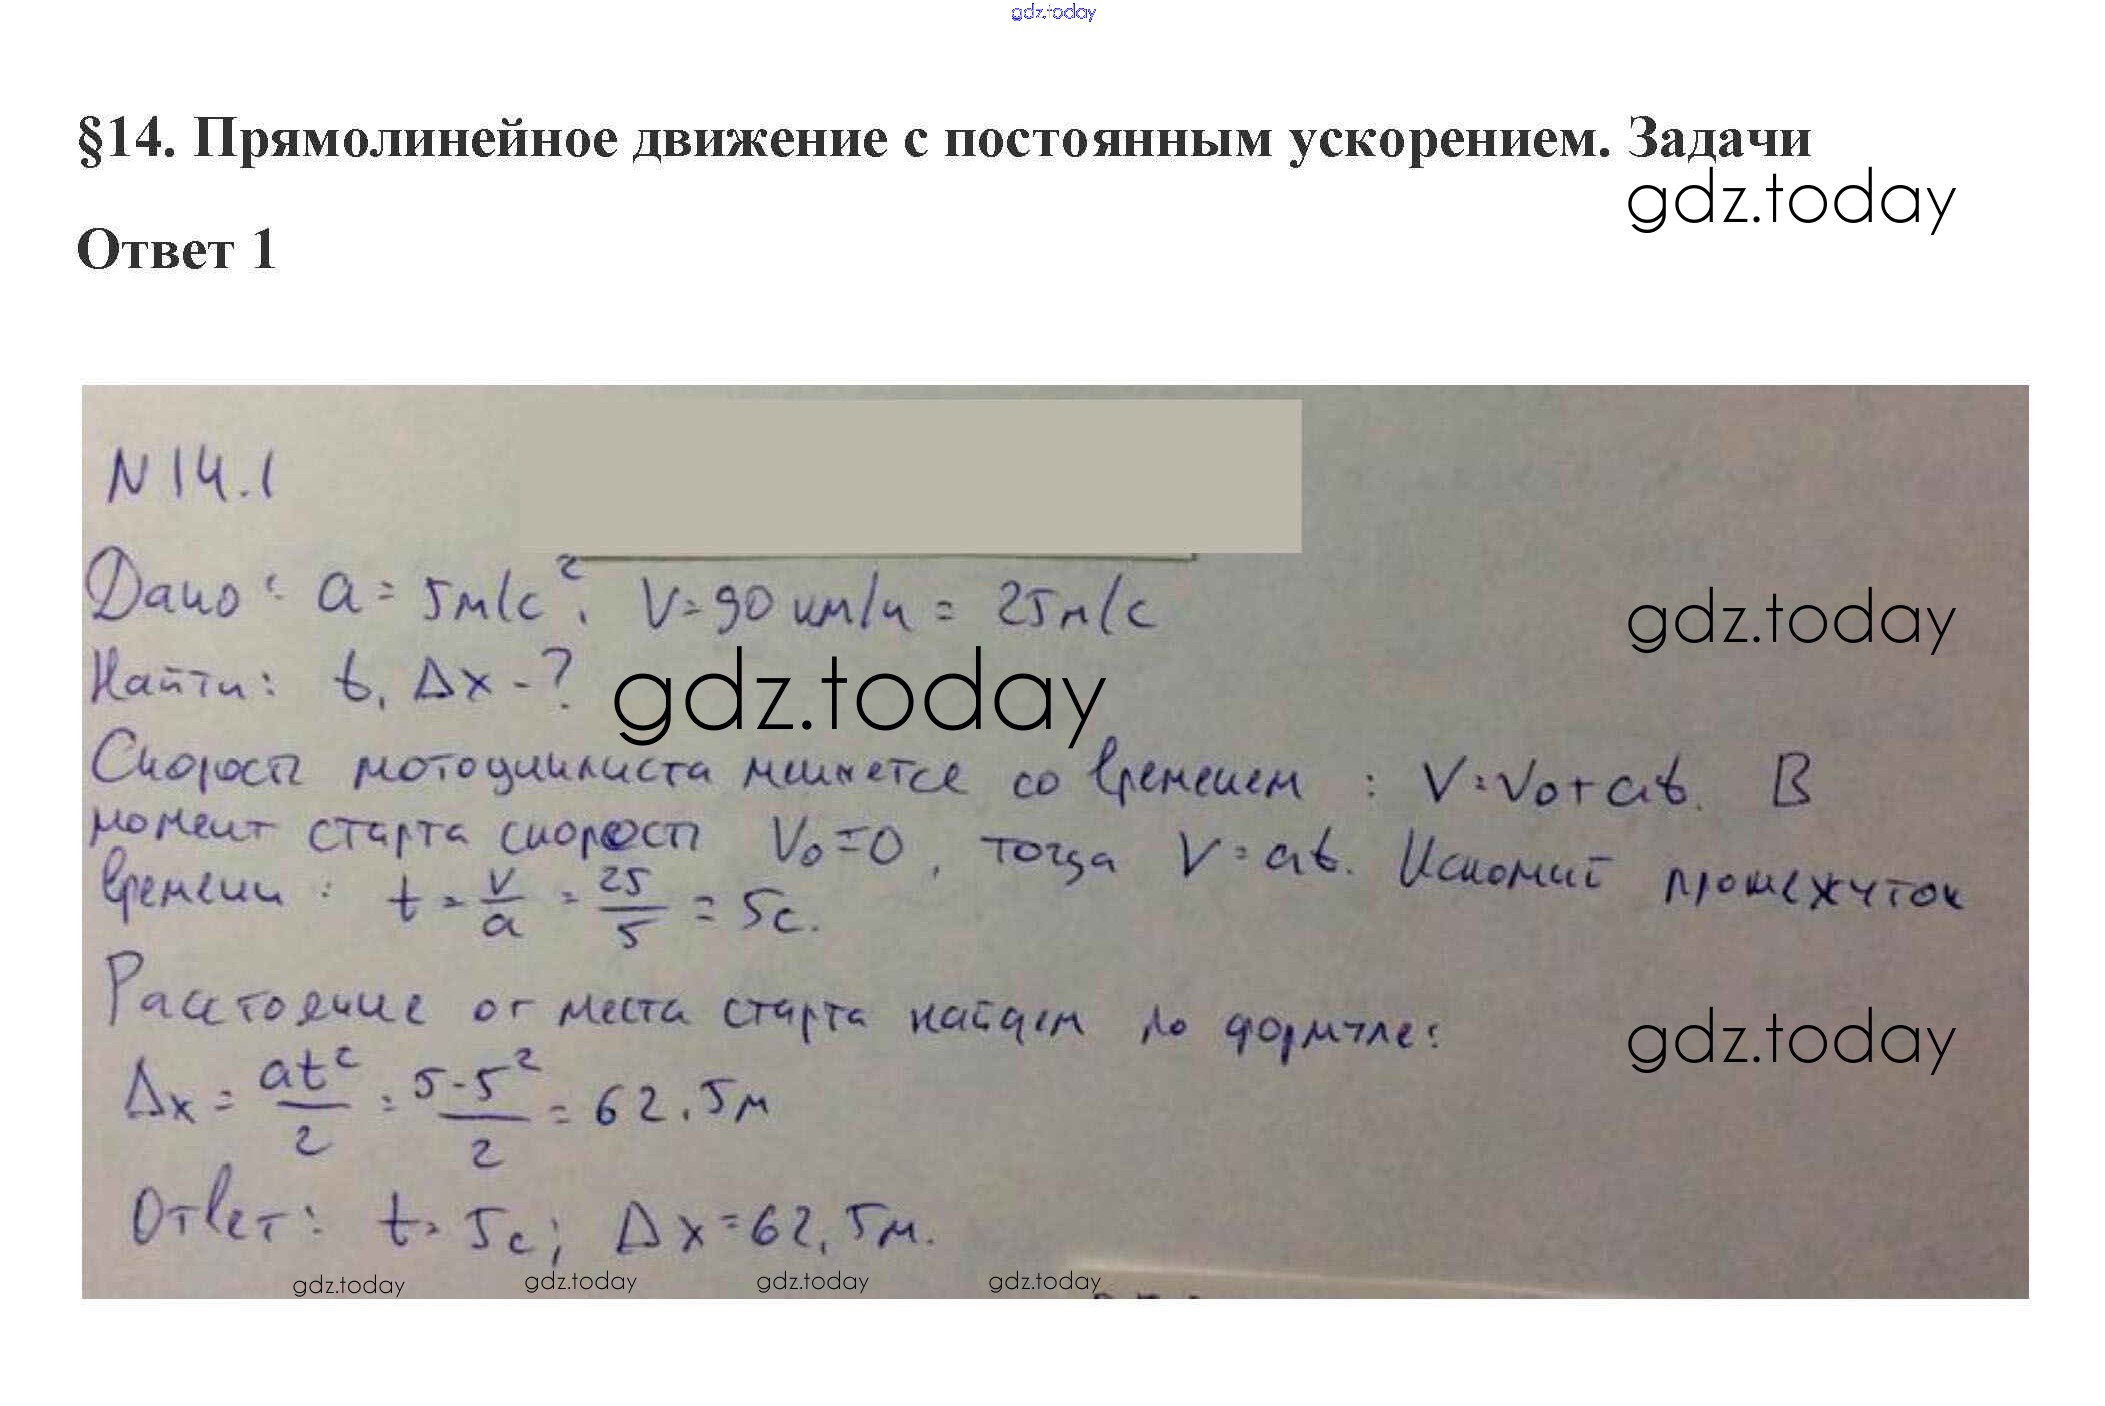 gdz.today
§14. Прямолинейное движение с постоянным ускорением. Задачи
gdz.today
Ответ 1
N 14.1
Дано: a = 5м/с². V = 90 км/ч = 25м/с
gdz.today
Найти: t, Δx - ?
gdz.today
Скорость мотоциклиста меняется со временем : V = V₀ + at. В
момент старта скорость V₀ = 0, тогда V = at. Искомый промежуток
времени : t = V/a = 25/5 = 5с.
Расстояние от места старта найдем по формуле:
gdz.today
Δx = at²/2 = 5·5²/2 = 62.5м
Ответ: t = 5с; Δx = 62,5м.
gdz.today gdz.today gdz.today gdz.today